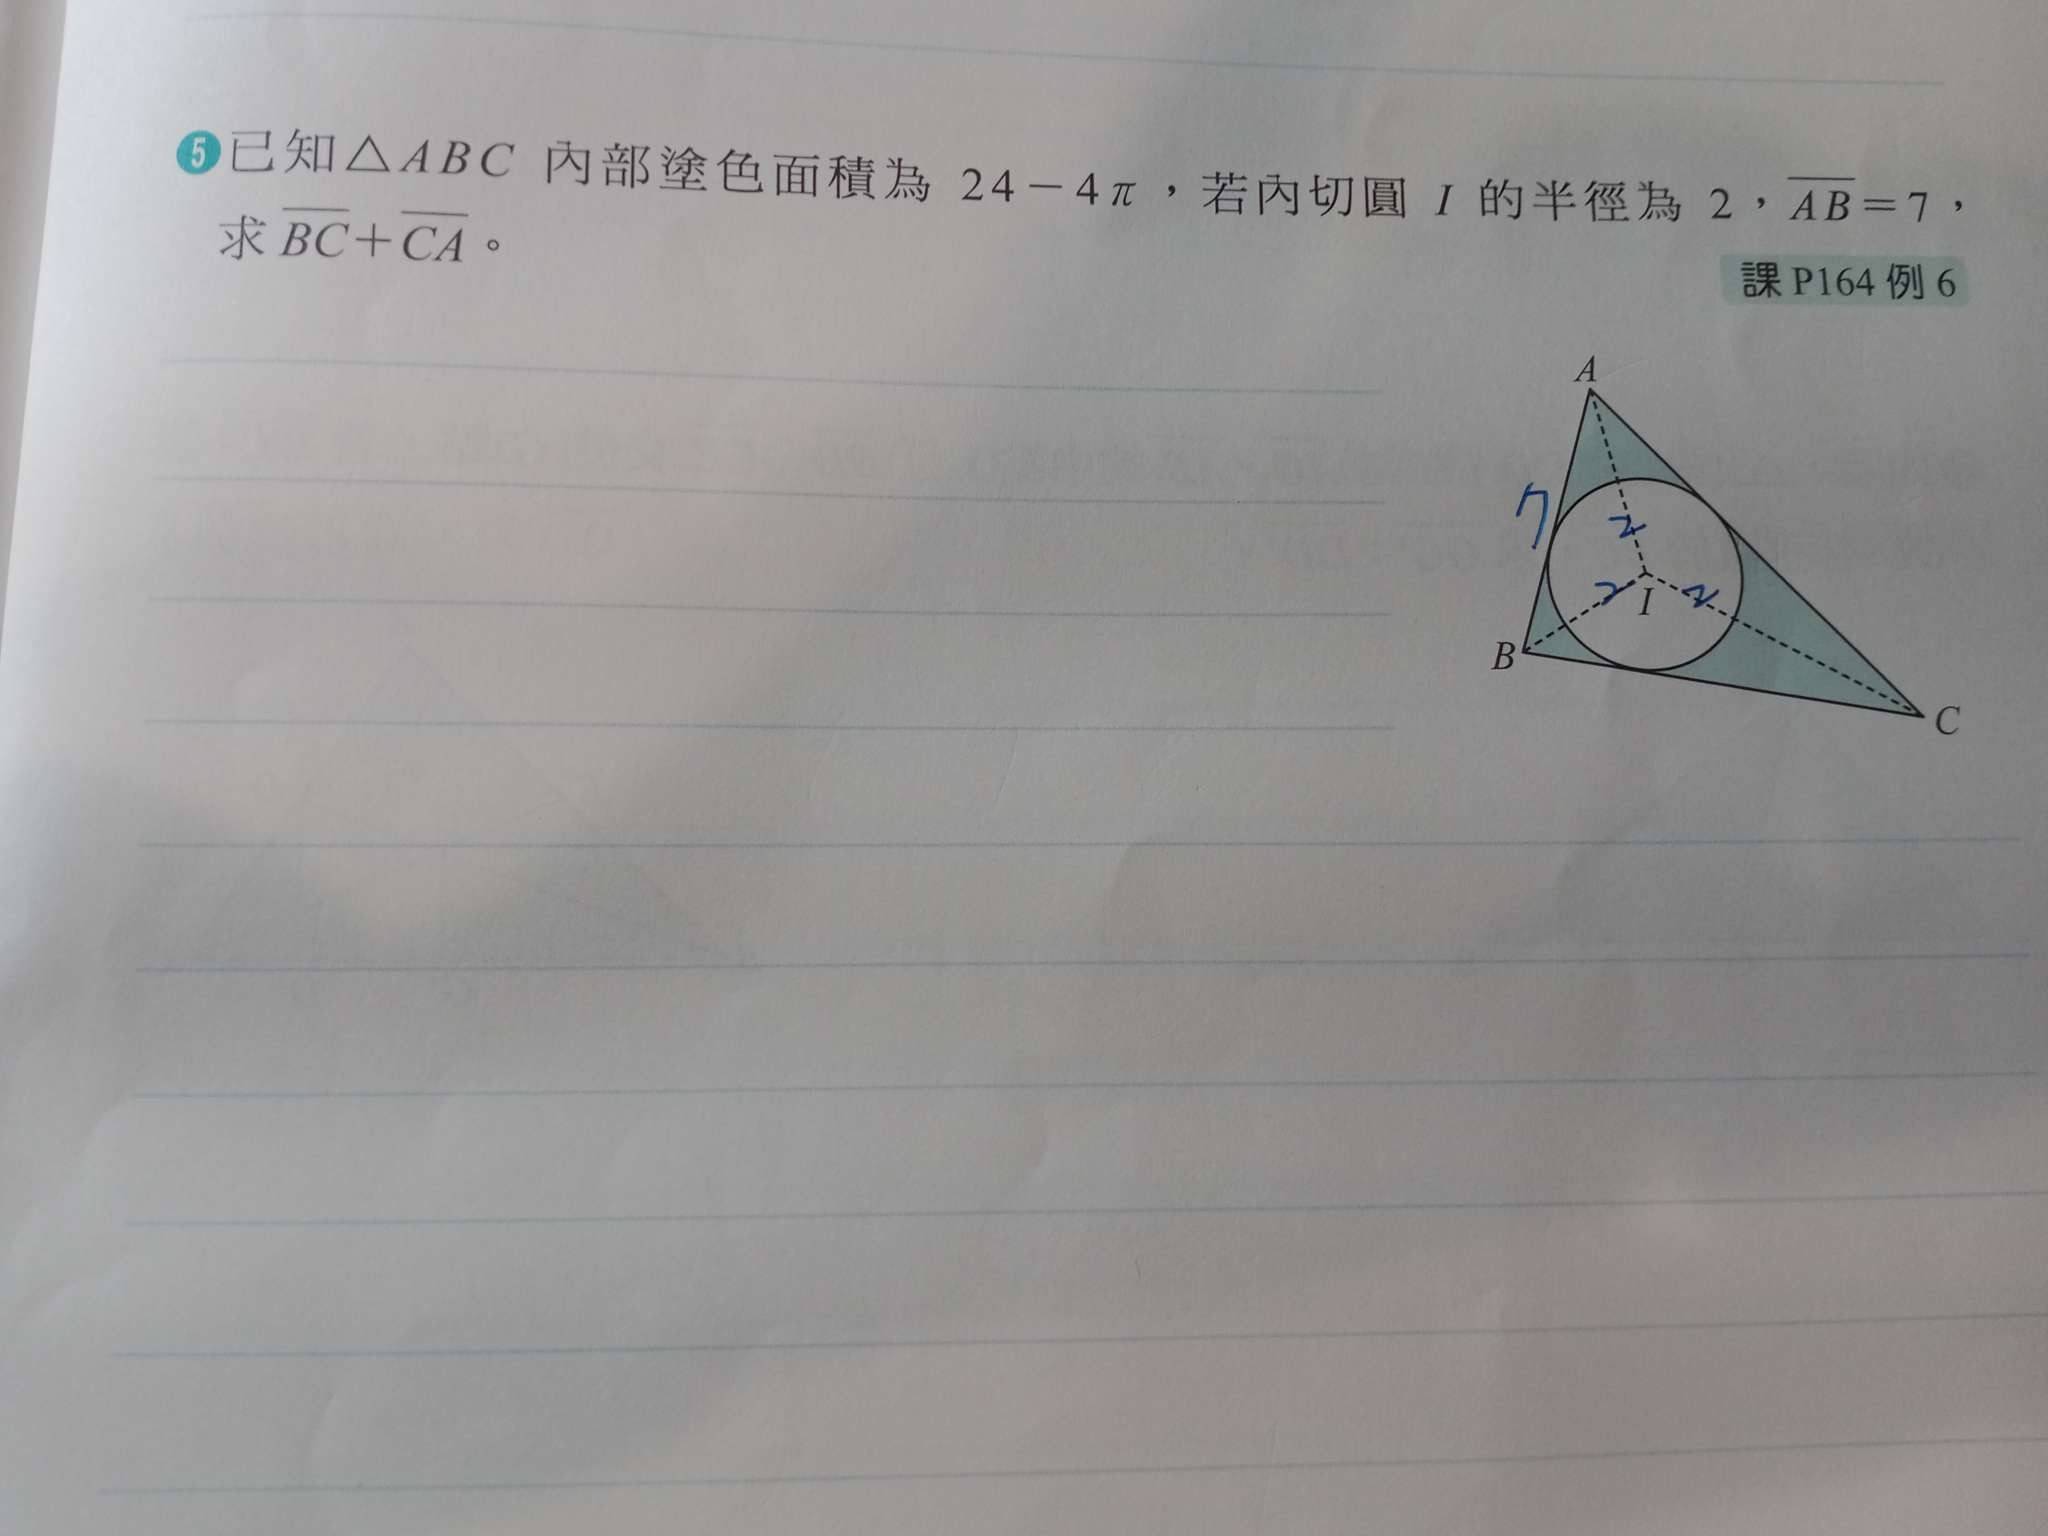 5 已知△ABC 內部塗色面積為 24－4π，若內切圓 I 的半徑為 2，AB＝7，
求 BC＋CA。
課 P164 例 6
A
7
2
2
I
2
B
C